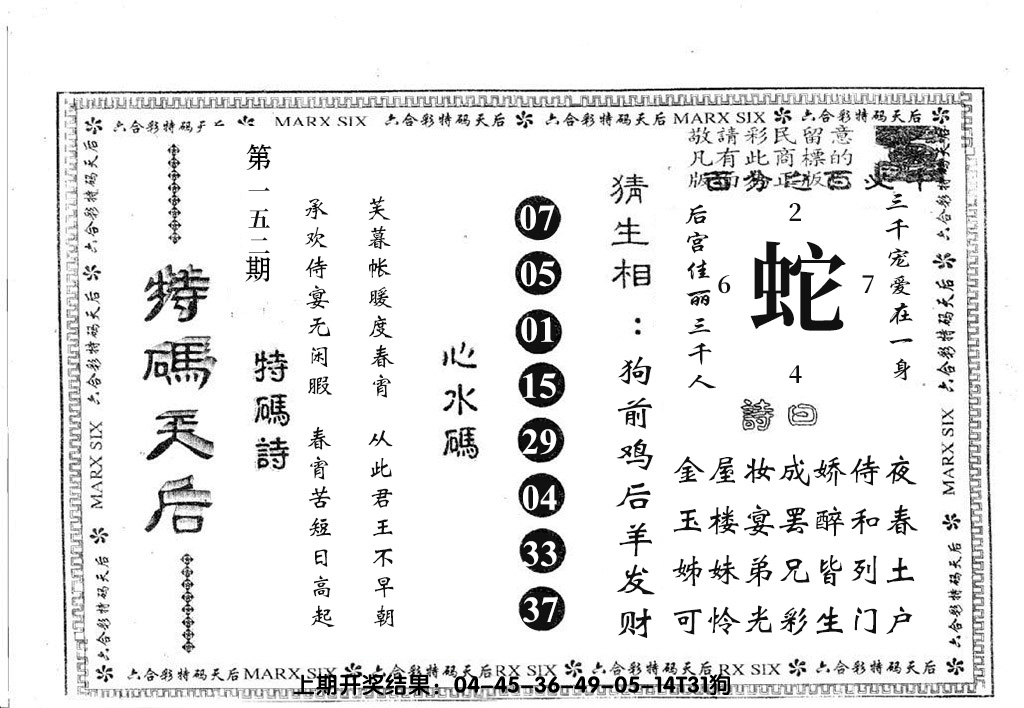 六合彩特码天后 MARX SIX 六合彩特码天后 六合彩特码天后 MARX SIX 六合彩特码天后
敬請彩民留意
凡有此商標的
版面为正版
三千宠爱在一身
2
6
蛇
7
4
后宫佳丽三千人
詩曰
金屋妆成娇侍夜
玉楼宴罢醉和春
姊妹弟兄皆列土
可怜光彩生门户
猜生相：狗前鸡后羊发财
07
05
01
15
29
04
33
37
心水碼
芙暮帐暖度春宵 从此君王不早朝
承欢侍宴无闲暇 春宵苦短日高起
特碼詩
第一五二期
特碼天后
六合彩特码天后 MARX SIX 六合彩特码天后
六合彩特码天后 MARX SIX 六合彩特码天后
六合彩特码天后MARX SIX 六合彩特码天后RX SIX 六合彩特码天后RX SIX 六合彩特码天后
上期开奖结果：04-45-36-49-05-14T31狗